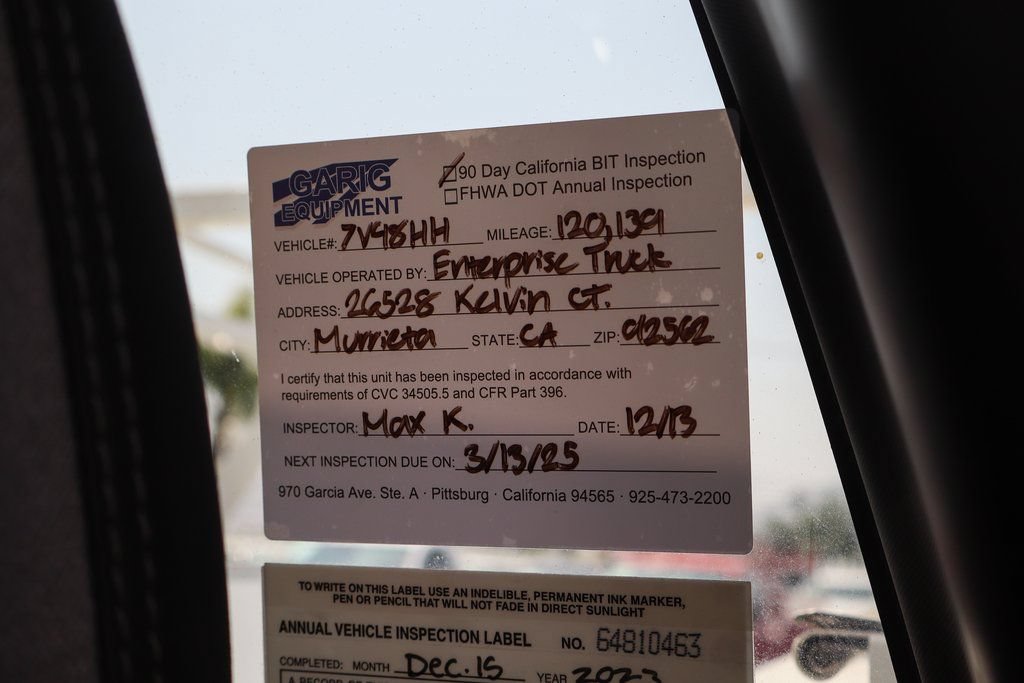 GARIG
EQUIPMENT
90 Day California BIT Inspection
FHWA DOT Annual Inspection
VEHICLE#: 7V48HH MILEAGE: 120,139
VEHICLE OPERATED BY: Enterprise Truck
ADDRESS: 26528 Kelvin CT.
CITY: Murrieta STATE: CA ZIP: 92562
I certify that this unit has been inspected in accordance with
requirements of CVC 34505.5 and CFR Part 396.
INSPECTOR: Max K. DATE: 12/13
NEXT INSPECTION DUE ON: 3/13/25
970 Garcia Ave. Ste. A · Pittsburg · California 94565 · 925-473-2200
TO WRITE ON THIS LABEL USE AN INDELIBLE, PERMANENT INK MARKER,
PEN OR PENCIL THAT WILL NOT FADE IN DIRECT SUNLIGHT
ANNUAL VEHICLE INSPECTION LABEL NO. 64810463
COMPLETED: MONTH Dec. 15 YEAR 2023